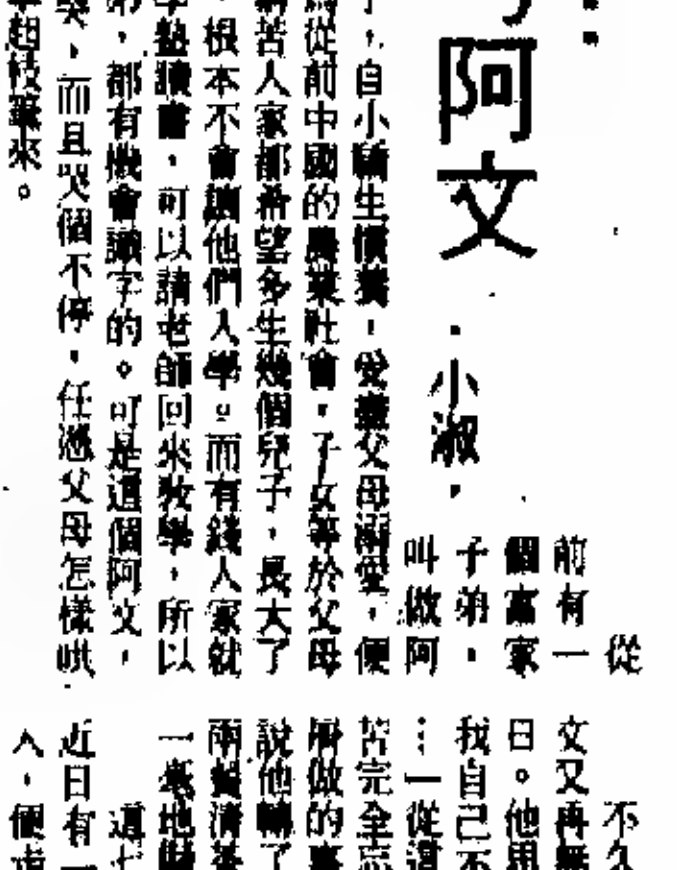 阿文
·小淑·
從
前有一
個富家
子弟，
叫做阿
，自小驕生慣養，受盡父母溺愛，便
從前中國的農業社會，子女等於父母
苦人家都希望多生幾個兒子，長大了
，根本不會讓他們入學。而有錢人家就
塾讀書，可以請老師回來教學，所以
，都有機會識字的。可是這個阿文，
哭，而且哭個不停，任憑父母怎樣哄
枝筆來。
不久
文又再無
日。他思
我自己不
…一從這
苦完全忘
做的事
說他轉了
兩餐清茶
一毫地
這七
近日有一
入，便